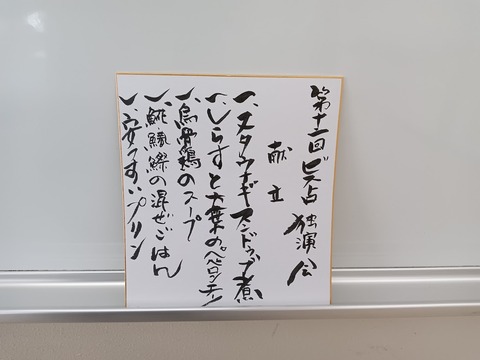 第十一回ビス占独演会
献立
一、ヌタウナギスンドゥブ煮
一、しらすと大葉のペペロンチーノ
一、烏骨鶏のスープ
一、の混ぜごはん
一、安っすいプリン